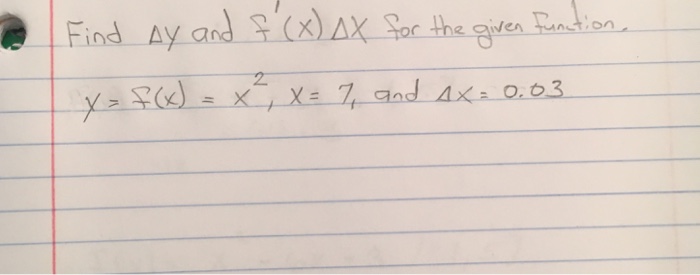 Find Δy and f'(x) Δx for the given function.
y = f(x) = x², x = 7, and Δx = 0.03